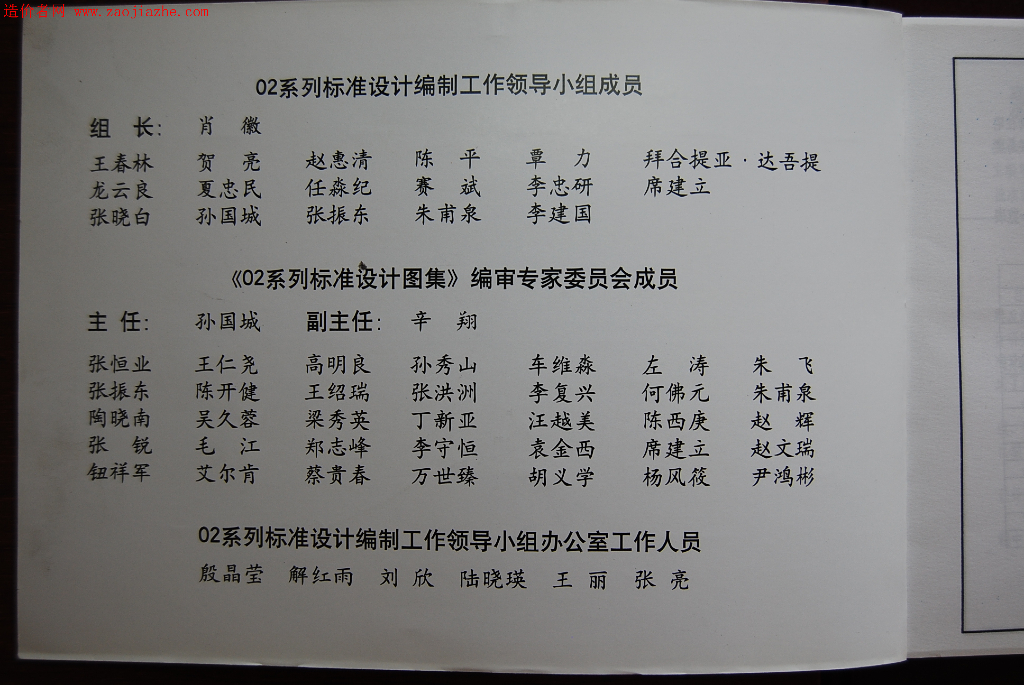 造价者网 www.zaojiazhe.com
02系列标准设计编制工作领导小组成员
组 长： 肖 徽
王春林 贺 亮 赵惠清 陈 平 覃 力 拜合提亚·达吾提
龙云良 夏忠民 任淼纪 赛 斌 李忠研 席建立
张晓白 孙国城 张振东 朱甫泉 李建国
《02系列标准设计图集》编审专家委员会成员
主 任： 孙国城 副主任： 辛 翔
张恒业 王仁尧 高明良 孙秀山 车维淼 左 涛 朱 飞
张振东 陈开健 王绍瑞 张洪洲 李复兴 何佛元 朱甫泉
陶晓南 吴久蓉 梁秀英 丁新亚 汪越美 陈西庚 赵 辉
张 锐 毛 江 郑志峰 李守恒 袁金西 席建立 赵文瑞
钮祥军 艾尔肯 蔡贵春 万世臻 胡义学 杨风筱 尹鸿彬
02系列标准设计编制工作领导小组办公室工作人员
殷晶莹 解红雨 刘 欣 陆晓瑛 王 丽 张 亮